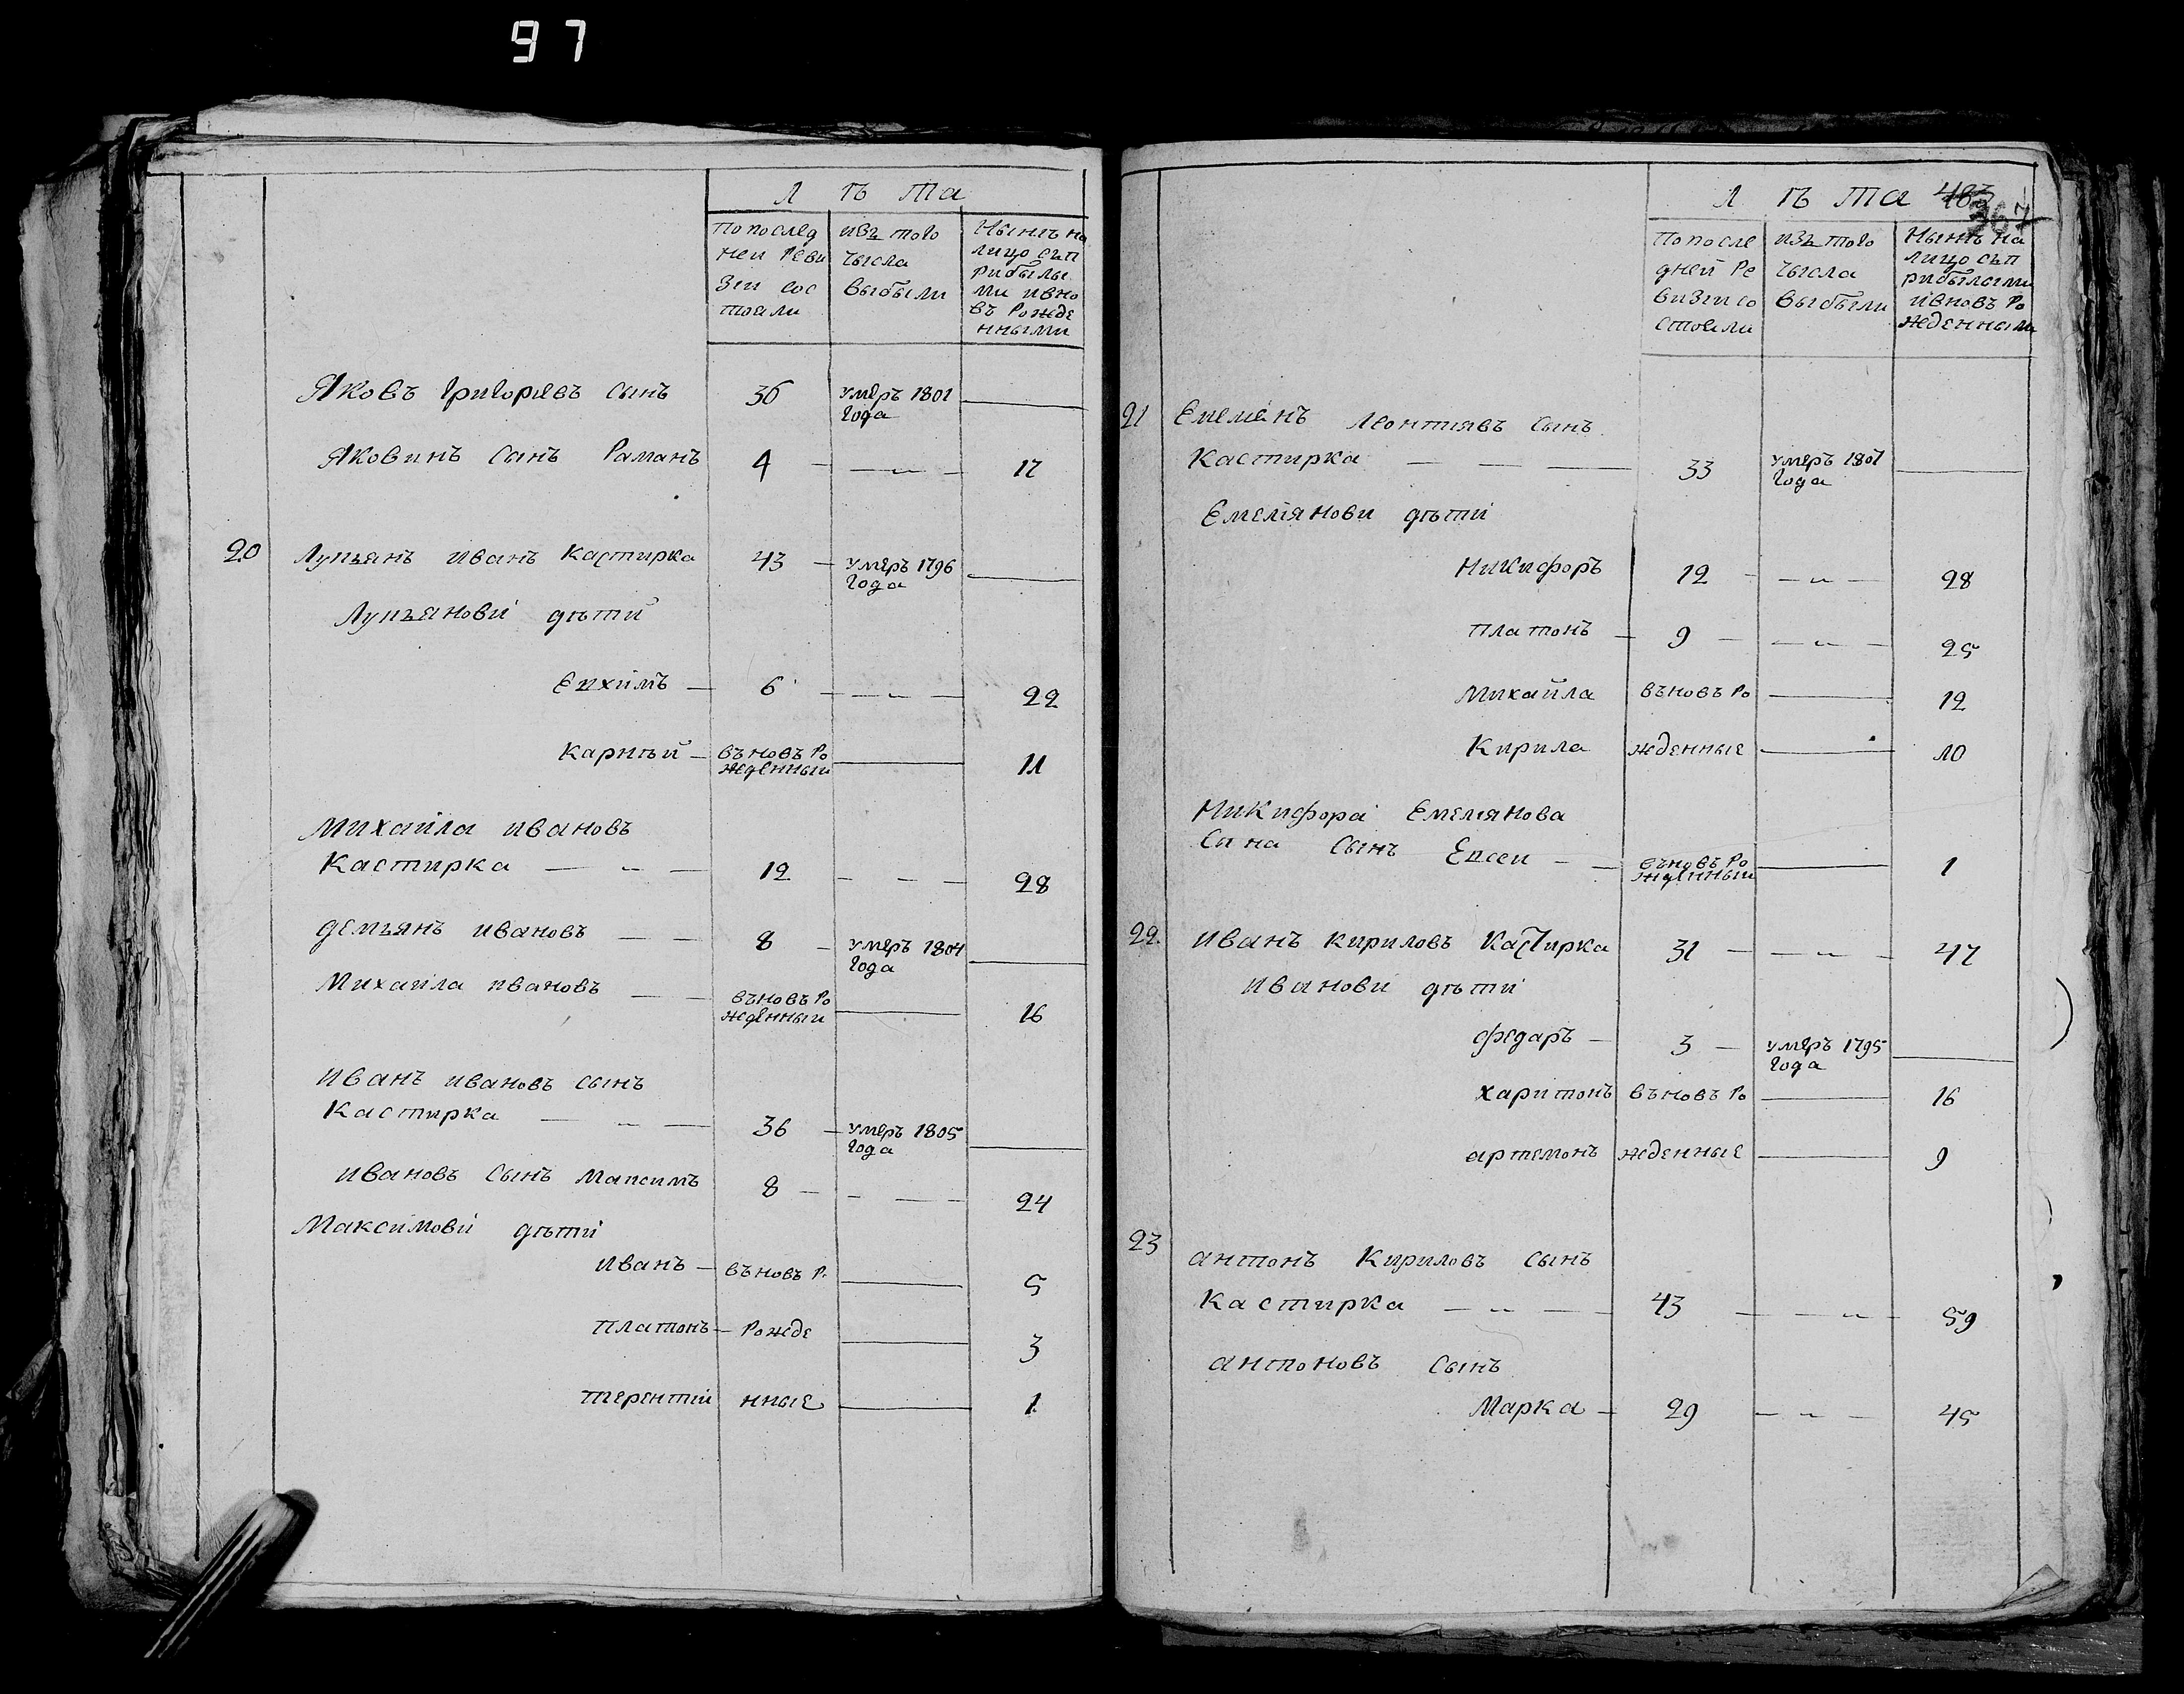 97
Л ѣ та
По послед
ней Реви
зіи сос
тояли
изъ того
числа
выбыли
Нынѣ на
лицо съ п
рибылы
ми и вно
въ Рожде
нными
Яковъ григоріевъ сынъ 36 умеръ 1801
года
Яковинъ Санъ Раманъ 4 — „ — 17
20 Лупъянъ иванъ Кастирка 43 умеръ 1796
года
Лупъянови дѣти
Евхимъ — 6 — „ — 22
Карнѣй — въновъ Ро
жденный 11
Михайла ивановъ
Кастирка — „ — 12 — — — 28
демъянъ ивановъ — — 8 — умеръ 1804
года
Михаила ивановъ — — въновъ Ро
жденный 16
иванъ ивановъ сынъ
Кастирка — „ — 36 — умеръ 1805
года
ивановъ Сынъ Максимъ 8 — — — 24
Максимови дѣти
иванъ — въновъ Р. 5
платонъ — Рожде 3
терентій нные 1
Л ѣ та 483
367
По после
дней Ре
визіи со
стояли
изъ того
числа
выбыли
Нынѣ на
лицо съ п
рибылыми
и вновъ Ро
жденными
21 Емелянъ Леонтіявъ Сынъ
Кастирка — — — 33 умеръ 1807
года
Емеліянови дѣти
Никифоръ 12 — — „ — 28
платонъ — 9 — — „ — 25
Михайла въновъ Ро 12
Кирила жденные 10
Никифора Емеліянова
Сина Сынъ Евсеи — — въновъ Ро
жденный 1
22. иванъ кириловъ КасТирка 31 — — „ — 47
иванови дѣти
Федаръ — 3 — умеръ 1795
года
харитонъ въновъ Ро 16
артемонъ жденные 9
23
антонъ Кириловъ Сынъ
Кастирка — „ — 43 — — „ — 59
антоновъ Сынъ
Марка — 29 — „ — 45